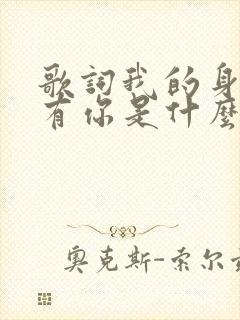 歌詞我的身
有你是什麼
奧克斯-索尔